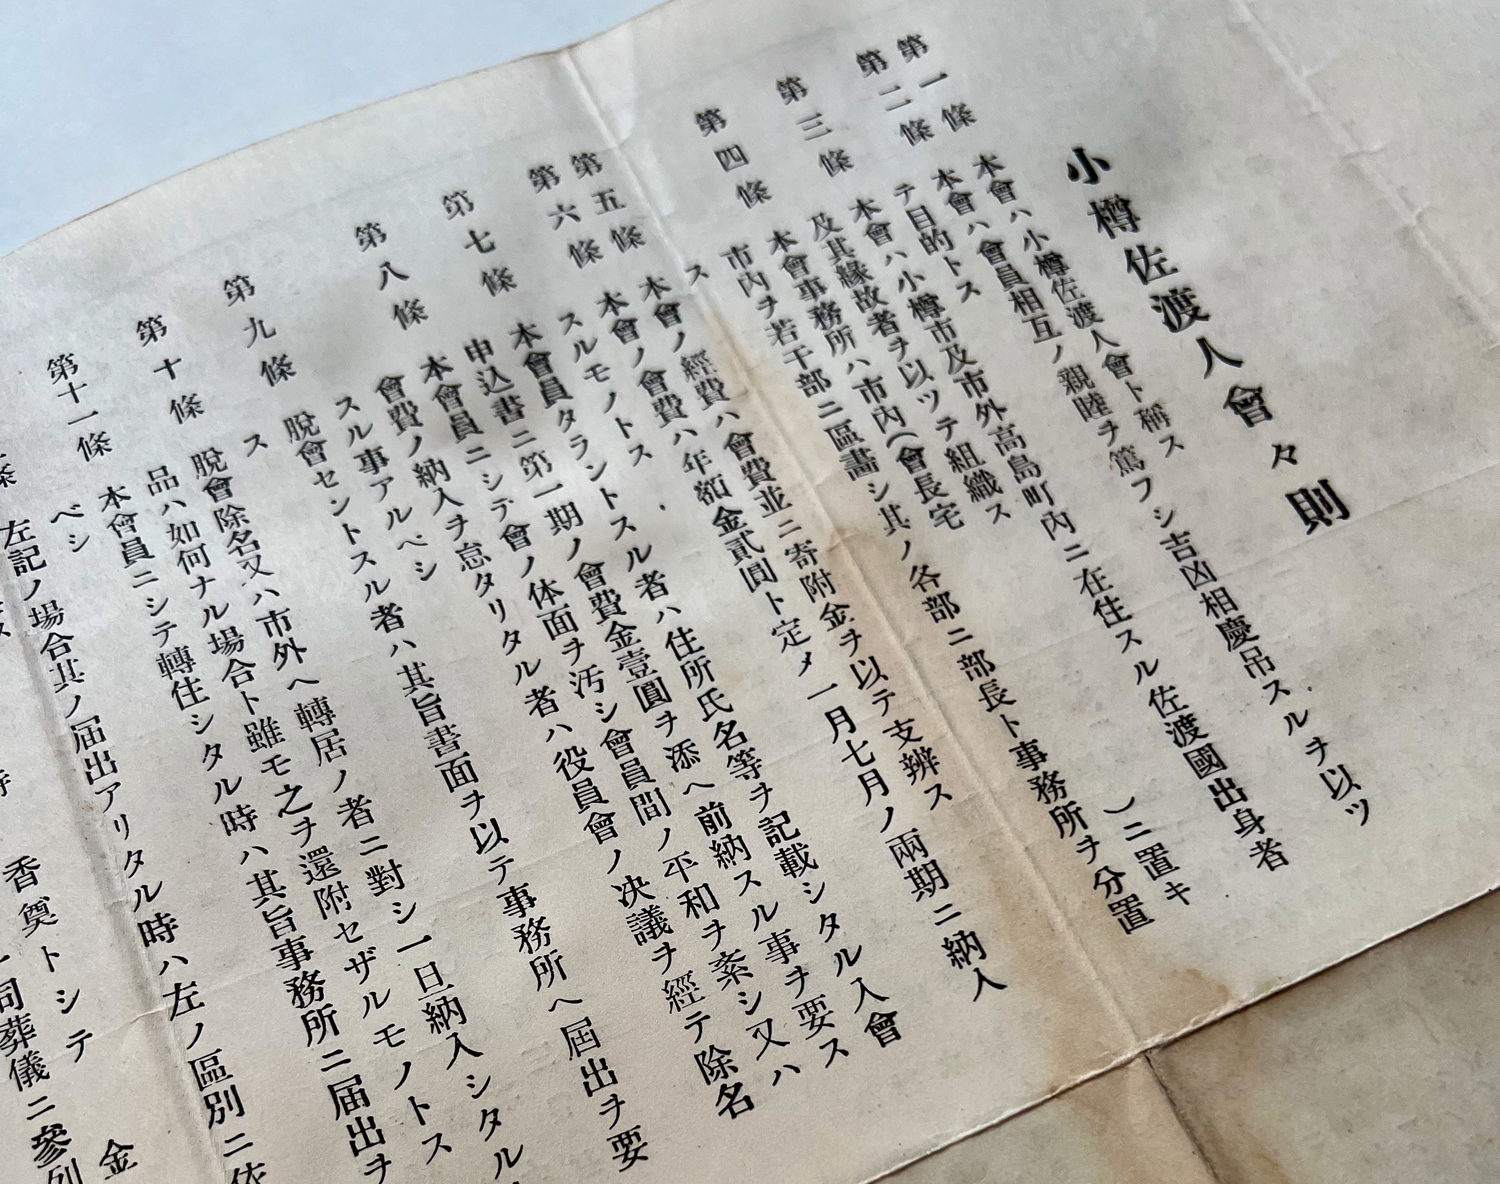 小樽佐渡人會々則
第一條 本會ハ小樽佐渡人會ト稱ス
第二條 本會ハ會員相互ノ親睦ヲ篤フシ吉凶相慶吊スルヲ以ツ
テ目的トス
第三條 本會ハ小樽市及市外高島町內ニ在住スル佐渡國出身者
及其緣故者ヲ以ツテ組織ス
第四條 本會事務所ハ市內(會長宅 )ニ置キ
市內ヲ若干部ニ區畵シ其ノ各部ニ部長ト事務所ヲ分置
ス
第五條 本會ノ經費ハ會費並ニ寄附金ヲ以テ支辨ス
第六條 本會ノ會費ハ年額金貳圓ト定メ一月七月ノ兩期ニ納入
スルモノトス
第七條 本會員タラントスル者ハ住所氏名等ヲ記載シタル入會
申込書ニ第一期ノ會費金壹圓ヲ添へ前納スル事ヲ要ス
第八條 本會員ニシテ會ノ体面ヲ汚シ會員間ノ平和ヲ紊シ又ハ
會費ノ納入ヲ怠タリタル者ハ役員會ノ决議ヲ經テ除名
スル事アルベシ
第九條 脫會セントスル者ハ其旨書面ヲ以テ事務所へ屆出ヲ要
ス
第十條 脫會除名又ハ市外へ轉居ノ者ニ對シ一旦納入シタル
品ハ如何ナル場合ト雖モ之ヲ還附セザルモノトス
第十一條 本會員ニシテ轉住シタル時ハ其旨事務所ニ届出ヲ
ベシ
條 左記ノ場合其ノ届出アリタル時ハ左ノ區別ニ依
香奠トシテ 金
同葬儀ニ參列